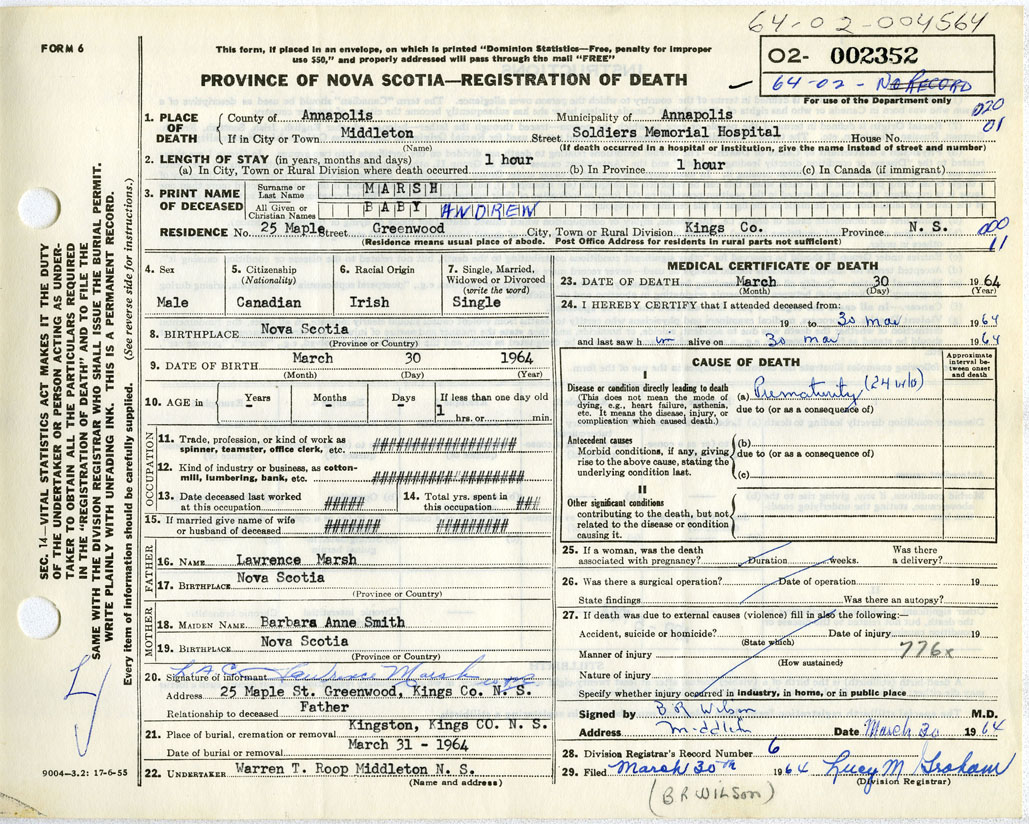 64-02-004564
FORM 6
This form, if placed in an envelope, on which is printed "Dominion Statistics—Free, penalty for improper
use $50," and properly addressed will pass through the mail "FREE"
O2- 002352
PROVINCE OF NOVA SCOTIA—REGISTRATION OF DEATH
64-02- No RECORD
For use of the Department only
020
01
1. PLACE OF DEATH County of Annapolis Municipality of Annapolis
If in City or Town Middleton Street Soldiers Memorial Hospital House No.
(Name) (If death occurred in a hospital or institution, give the name instead of street and number)
2. LENGTH OF STAY (in years, months and days)
(a) In City, Town or Rural Division where death occurred 1 hour (b) In Province 1 hour (c) In Canada (if immigrant)
3. PRINT NAME OF DECEASED Surname or Last Name MARSH
All Given or Christian Names BABY ANDREW
RESIDENCE No. 25 Maple Street Greenwood City, Town or Rural Division Kings Co. Province N. S.
(Residence means usual place of abode. Post Office Address for residents in rural parts not sufficient)
000
11
SEC. 14—VITAL STATISTICS ACT MAKES IT THE DUTY
OF THE UNDERTAKER OR PERSON ACTING AS UNDER-
TAKER TO OBTAIN ALL THE PARTICULARS REQUIRED
IN THE "REGISTRATION OF DEATH" AND TO FILE THE
SAME WITH THE DIVISION REGISTRAR WHO SHALL ISSUE THE BURIAL PERMIT.
WRITE PLAINLY WITH UNFADING INK. THIS IS A PERMANENT RECORD.
Every item of information should be carefully supplied. (See reverse side for instructions.)
4. Sex 5. Citizenship (Nationality) 6. Racial Origin 7. Single, Married, Widowed or Divorced (write the word)
Male Canadian Irish Single
8. BIRTHPLACE Nova Scotia
(Province or Country)
9. DATE OF BIRTH March 30 1964
(Month) (Day) (Year)
10. AGE in Years Months Days If less than one day old
- - - 1 hrs. or min.
OCCUPATION
11. Trade, profession, or kind of work as
spinner, teamster, office clerk, etc. ##################
12. Kind of industry or business, as cotton-
mill, lumbering, bank, etc. ##################
13. Date deceased last worked
at this occupation ##### 14. Total yrs. spent in this occupation ###
15. If married give name of wife
or husband of deceased ####### #########
FATHER
16. NAME Lawrence Marsh
17. BIRTHPLACE Nova Scotia
(Province or Country)
MOTHER
18. MAIDEN NAME Barbara Anne Smith
19. BIRTHPLACE Nova Scotia
(Province or Country)
20. Signature of informant LAC Lawrence Marsh
Address 25 Maple St. Greenwood, Kings Co. N. S.
Relationship to deceased Father
21. Place of burial, cremation or removal Kingston, Kings CO. N. S.
Date of burial or removal March 31 - 1964
22. UNDERTAKER Warren T. Roop Middleton N. S.
(Name and address)
9004-3.2: 17-6-55
MEDICAL CERTIFICATE OF DEATH
23. DATE OF DEATH March 30 1964
(Month) (Day) (Year)
24. I HEREBY CERTIFY that I attended deceased from:
19 to 30 mar 1964
and last saw h im alive on 30 mar 1964
CAUSE OF DEATH
Approximate interval be-tween onset and death
I
Disease or condition directly leading to death
(This does not mean the mode of
dying, e.g., heart failure, asthenia,
etc. It means the disease, injury, or
complication which caused death.)
(a) Prematurity (24 wks)
due to (or as a consequence of)
Antecedent causes
Morbid conditions, if any, giving
rise to the above cause, stating the
underlying condition last.
(b)
due to (or as a consequence of)
(c)
II
Other significant conditions
contributing to the death, but not
related to the disease or condition
causing it.
25. If a woman, was the death
associated with pregnancy? Duration weeks. Was there a delivery?
26. Was there a surgical operation? Date of operation 19
State findings Was there an autopsy?
27. If death was due to external causes (violence) fill in also the following:—
Accident, suicide or homicide? Date of injury 19
(State which)
Manner of injury 776x
(How sustained)
Nature of injury
Specify whether injury occurred in industry, in home, or in public place
Signed by B R Wilson M.D.
Address Middleton Date March 30 1964
28. Division Registrar's Record Number 6
29. Filed March 30th 1964 Lucy M Graham
(Division Registrar)
(B R WILSON)